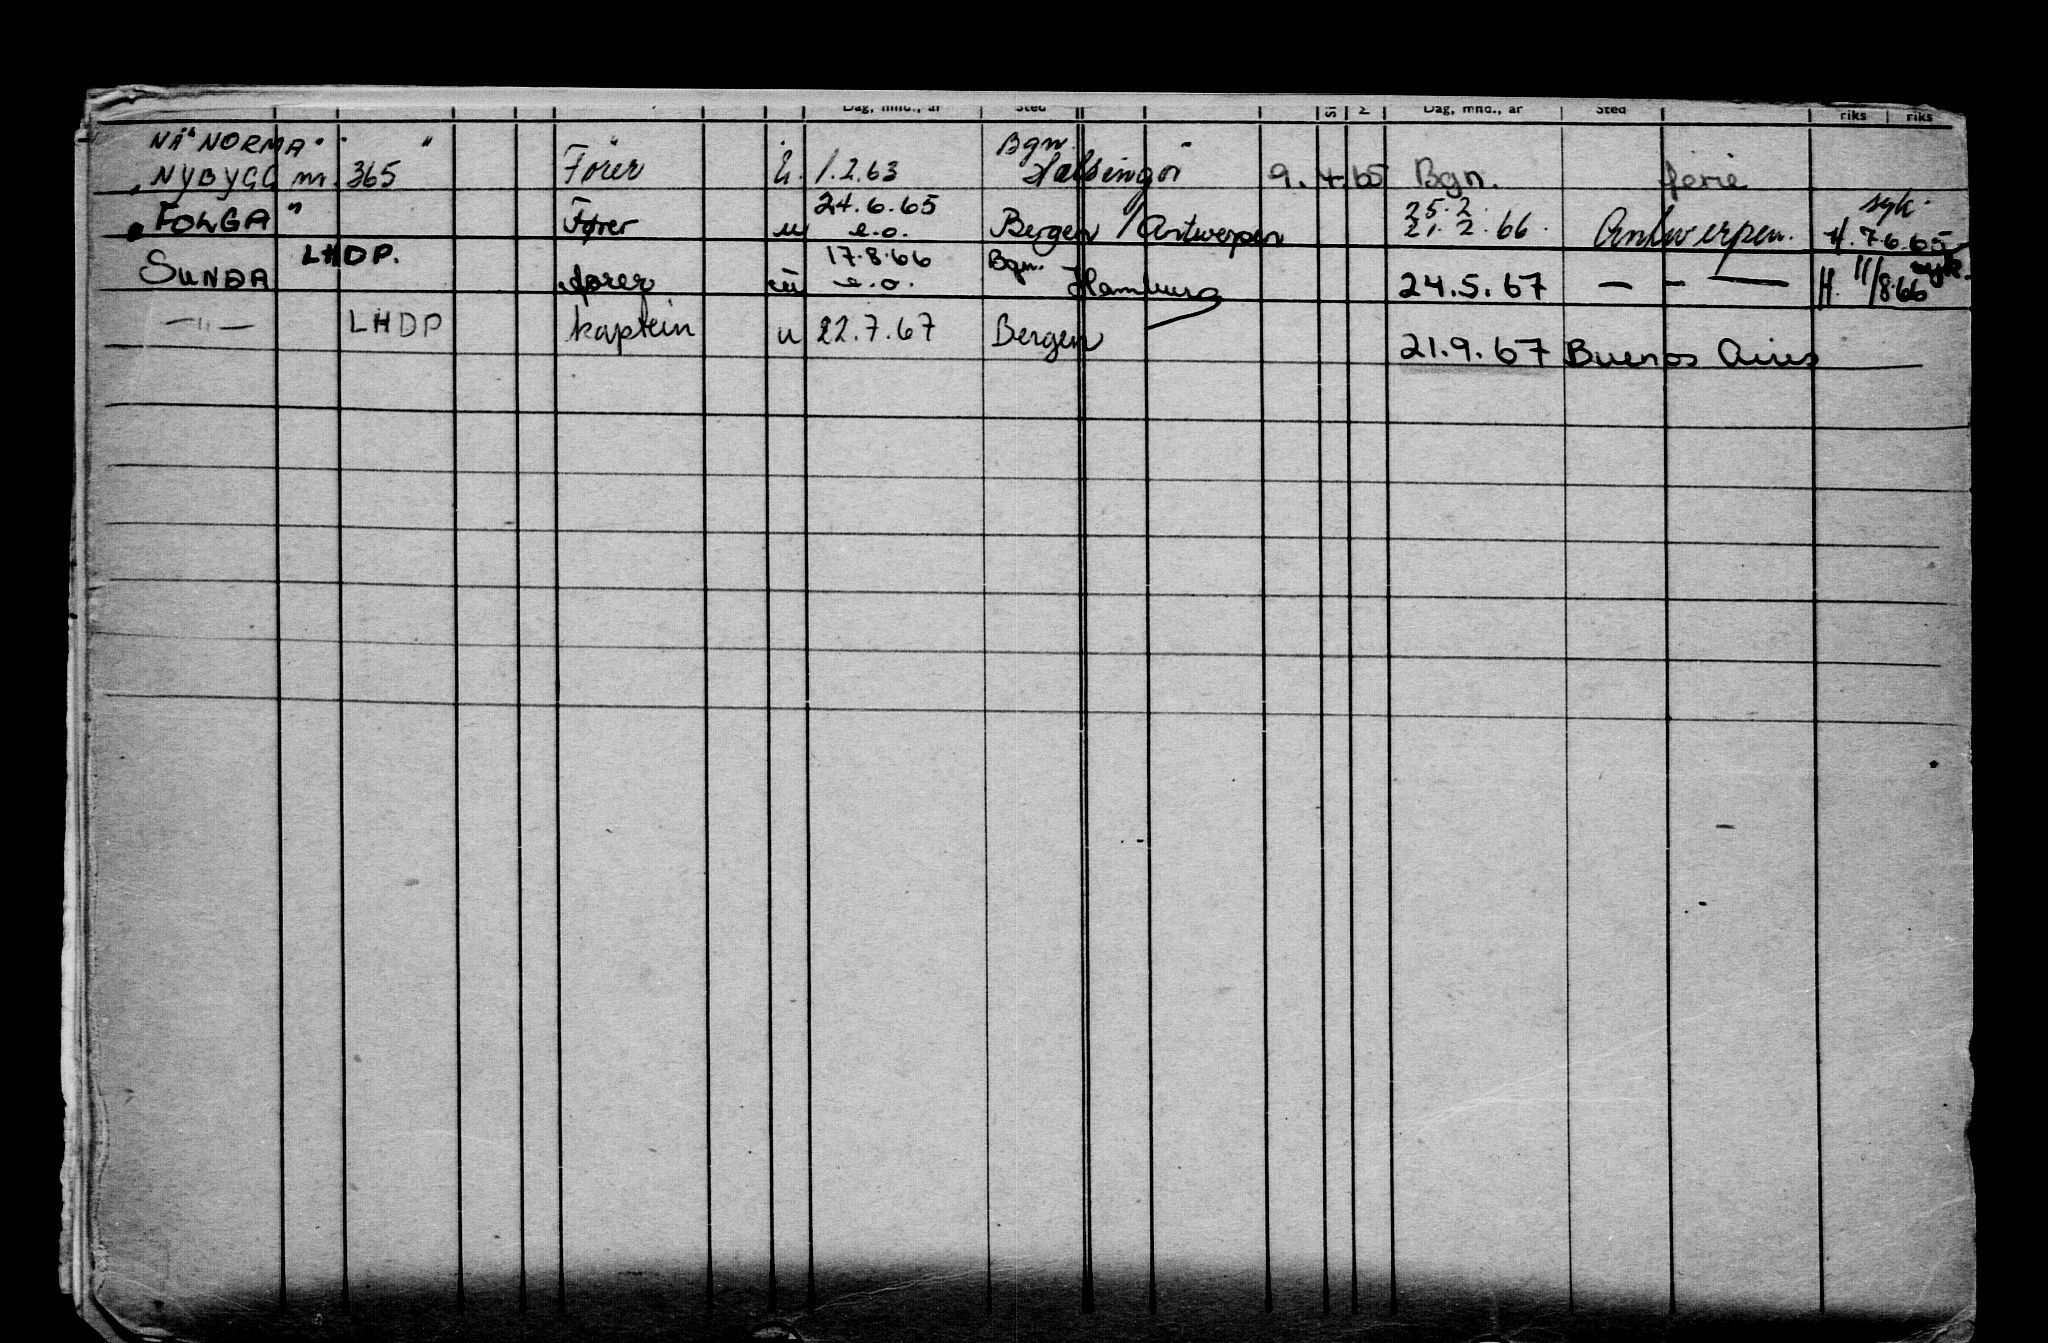 Dag, mnd., år Sted St M Dag, mnd., år Sted riks riks
NÅ "NORMA" " Bgn.
NYBYGG nr. 365 Fører U. 1.2.63 Halsingör 9.4.65 Bgn. ferie
24.6.65 25.2. syk.
FOLGA " Fører u e.o. Bergen / Antwerpen 21.2.66. Antwerpen. H. 7.6.65
LHDP. 17.8.66 Bgn. syk.
SUNDA fører u e.o. Hamburg 24.5.67 — - — H. 11/8.66
—"— LHDP kaptein u 22.7.67 Bergen
21.9.67 Buenos Aires